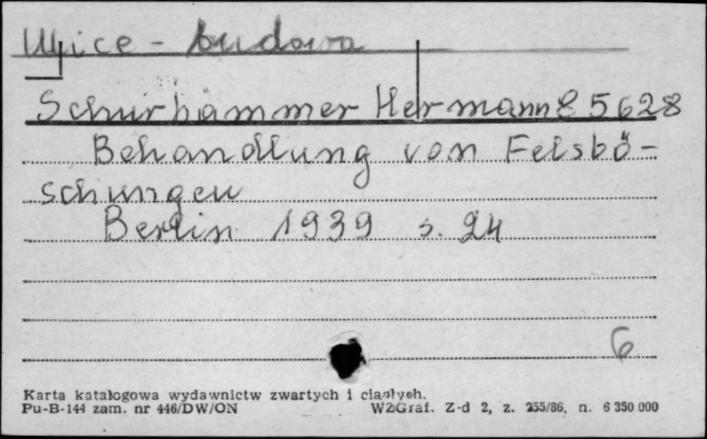 Ulice - budowa
Schurhammer Hermann E 5628
Behandlung von Felsbö-
schungen
Berlin 1939 s. 24
6
Karta katalogowa wydawnictw zwartych i ciągłych.
Pu-B-144 zam. nr 446/DW/ON WZGraf. Z-d 2, z. 255/86, n. 6 350 000